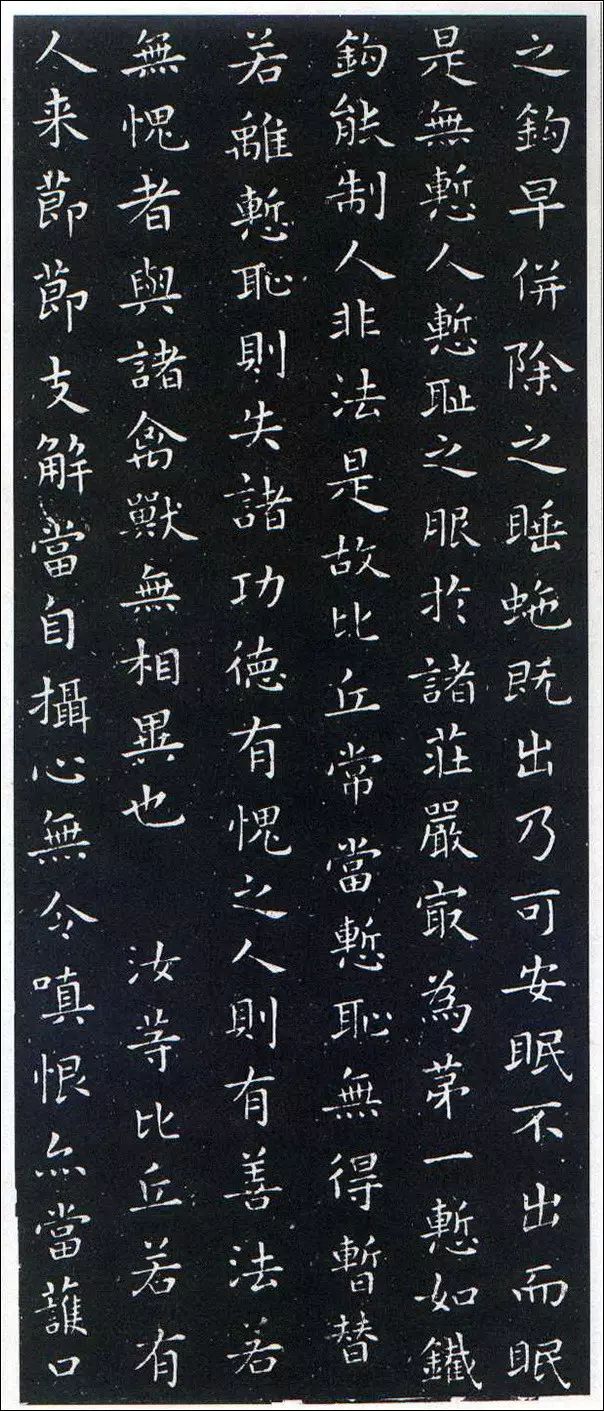 之鈎早併除之睡虵既出乃可安眠不出而眠
是無慙人慙耻之服於諸莊嚴寂為苐一慙如鐵
鈎能制人非法是故比丘常當慙恥無得暫替
若離慙恥則失諸功德有愧之人則有善法若
無愧者與諸禽獸無相異也 汝等比丘若有
人来節節支解當自攝心無令嗔恨亦當護口